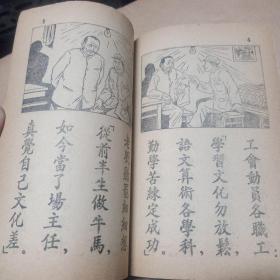 工會動員各職工,
「學習文化勿放鬆,
語文算術各學科,
勤學苦練定成功」。
「從前半生做牛馬,
如今當了場主任,
真覺自己文化差。